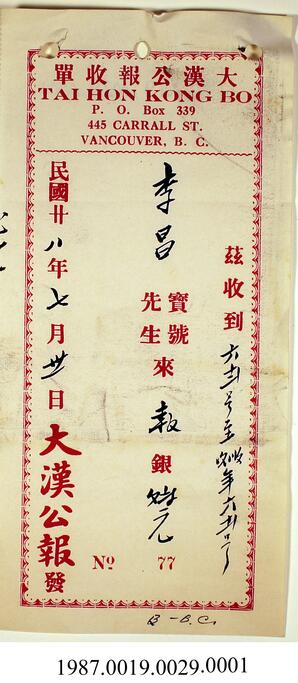 大漢公報收單
TAI HON KONG BO
P. O. Box 339
445 CARRALL ST.
VANCOUVER, B. C.
茲收到
李昌
寶號
先生
來報銀
元
民國廿八年七月卅日
大漢公報發
No 77
B-B.C.
1987.0019.0029.0001